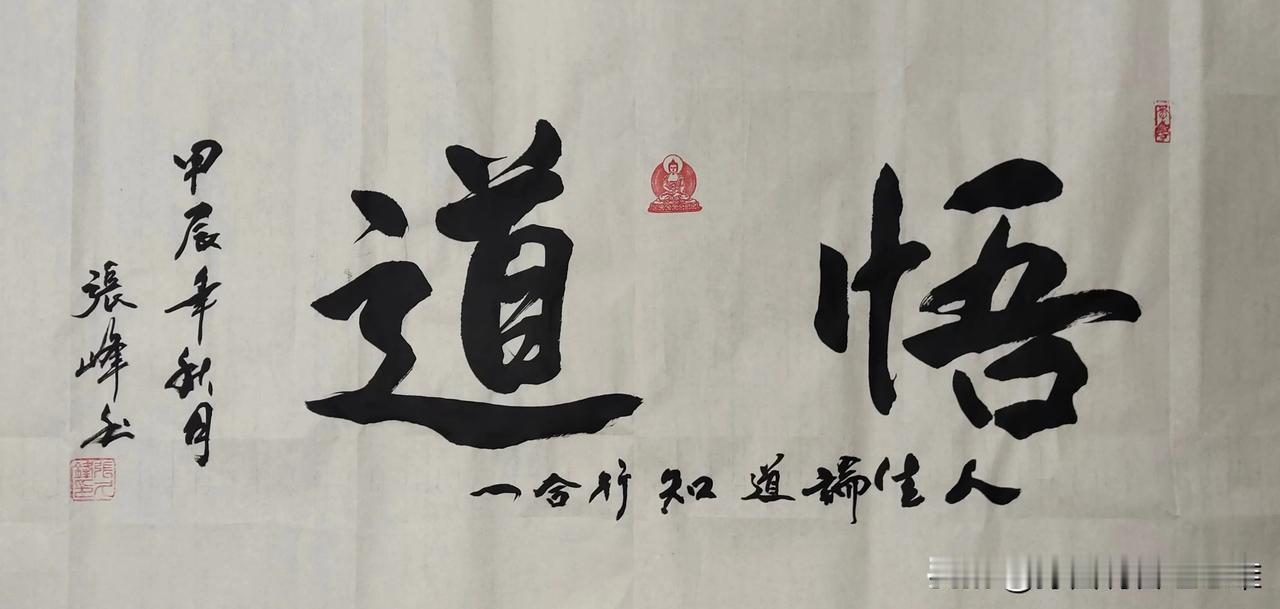 悟道
人佳端道知行合一
甲辰年秋月
張峰书